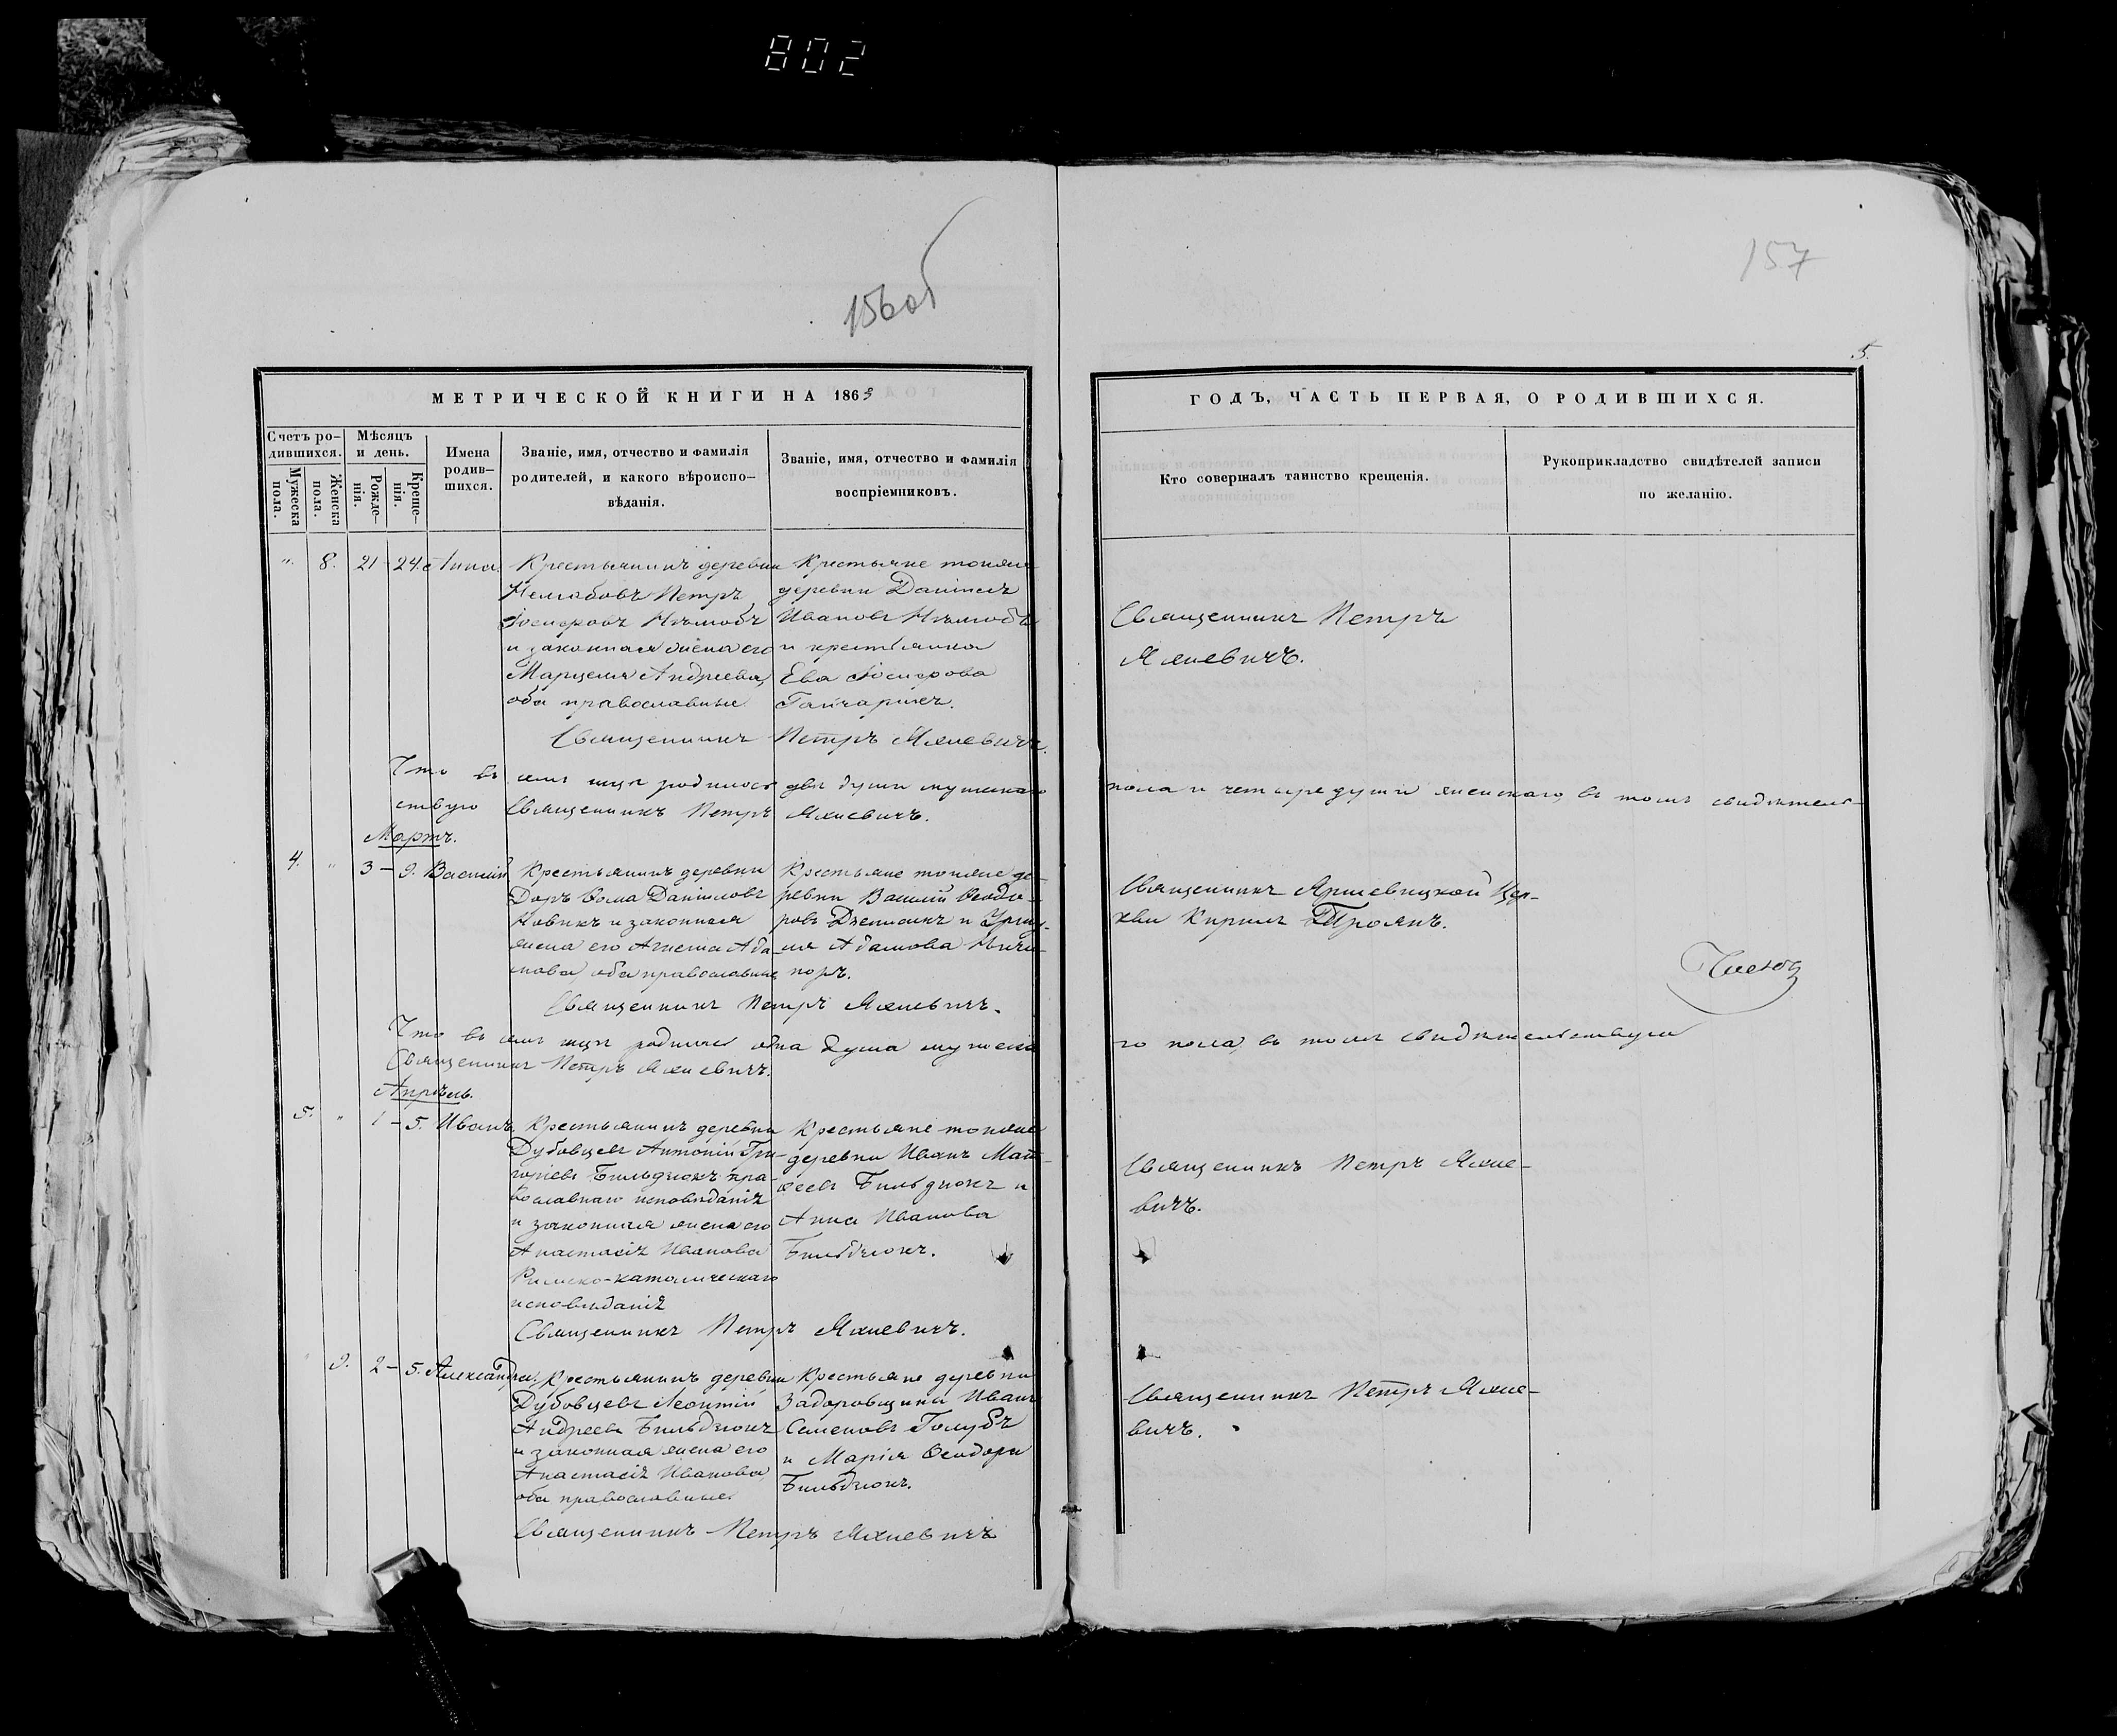 802
156об
157
5.
МЕТРИЧЕСКОЙ КНИГИ НА 1863
ГОДЪ, ЧАСТЬ ПЕРВАЯ, О РОДИВШИХСЯ.
Счетъ ро-
дившихся.
Мужеска
пола.
Женска
пола.
Мѣсяцъ
и день.
Рожде-
нія.
Креще-
нія.
Имена
родив-
шихся.
Званіе, имя, отчество и фамилія
родителей, и какого вѣроиспо-
вѣданія.
Званіе, имя, отчество и фамилія
воспріемниковъ.
Кто совершалъ таинство крещенія.
Рукоприкладство свидѣтелей записи
по желанію.
" 8. 21 - 24. Анна.
Крестьянинъ деревни
Петръ
Іосифовъ
и законная жена его
Андреева,
оба православные.
Крестьяне тойже
деревни Даніилъ
Ивановъ
и крестьянка
Ева Іосифова
Священникъ Петръ Яхневичъ.
Священникъ Петръ
Яхневичъ.
Что въ семъ мцѣ родилось двѣ души мужескаго
пола и четыре души женскаго, въ томъ свидѣтель-
ствую Священникъ Петръ Яхневичъ.
Мартъ.
4. " 3 - 9. Василій
Крестьянинъ деревни
Доръ Ѳома Даніиловъ
Новикъ и законная
жена его Агнета Ада-
мова, оба православные
Крестьяне тойже де-
ревни Василій Ѳеодо-
ровъ и
Адамова Ничи-
поръ.
Священникъ Петръ Яхневичъ.
Священникъ Яршевицкой Цер-
кви Кирилъ Троянъ.
Что въ семъ мцѣ родилась одна душа мужеска-
го пола, въ томъ свидѣтельствую
Священникъ Петръ Яхневичъ.
Апрѣль.
5. " 1 - 5. Иванъ.
Крестьянинъ деревни
Дубовцевъ Антоній Гри-
горіевъ Бильдюкъ пра-
вославнаго исповѣданія
и законная жена его
Анастасія Иванова
Римско-католическаго
исповѣданія
Крестьяне тойже
деревни Иванъ Мат-
ѳеевъ Бильдюкъ и
Анна Иванова
Бильдюкъ.
Священникъ Петръ Яхневичъ.
Священникъ Петръ Яхне-
вичъ.
" 9. 2 - 5. Александра.
Крестьянинъ деревни
Дубовцевъ Леонтій
Андреевъ Бильдюкъ
и законная жена его
Анастасія Иванова,
оба православные.
Крестьяне деревни
Задоровщины Иванъ
Семеновъ Голубъ
и Марія Ѳеодора
Бильдюкъ.
Священникъ Петръ Яхневичъ
Священникъ Петръ Яхне-
вичъ.